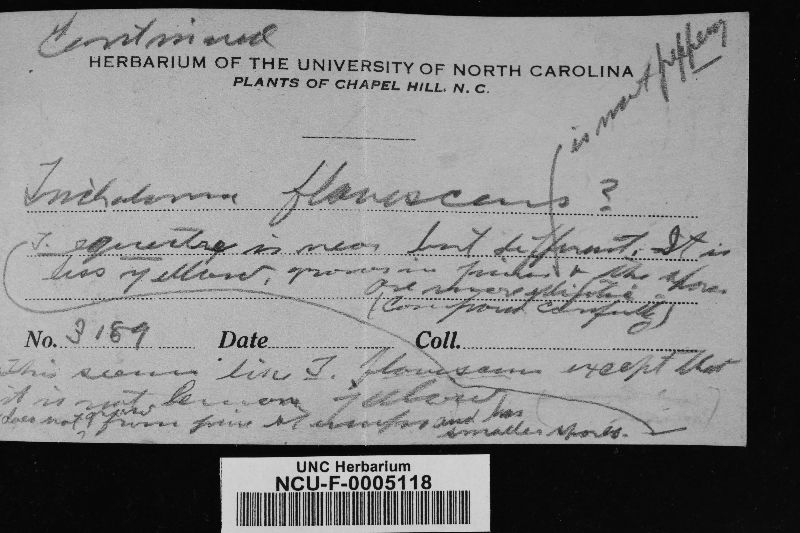 Continued
HERBARIUM OF THE UNIVERSITY OF NORTH CAROLINA
PLANTS OF CHAPEL HILL, N. C.
is not peppery
Tricholoma flavescens ?
T. equestre is near but different. It is
less yellow, grows in pines & the spores
are more elliptic
(Compare carefully)
No. 3189 Date Coll.
This seems like T. flavescens except that
it is not lemon yellow,
does not grow from pine stumps and has
smaller spores.
UNC Herbarium
NCU-F-0005118